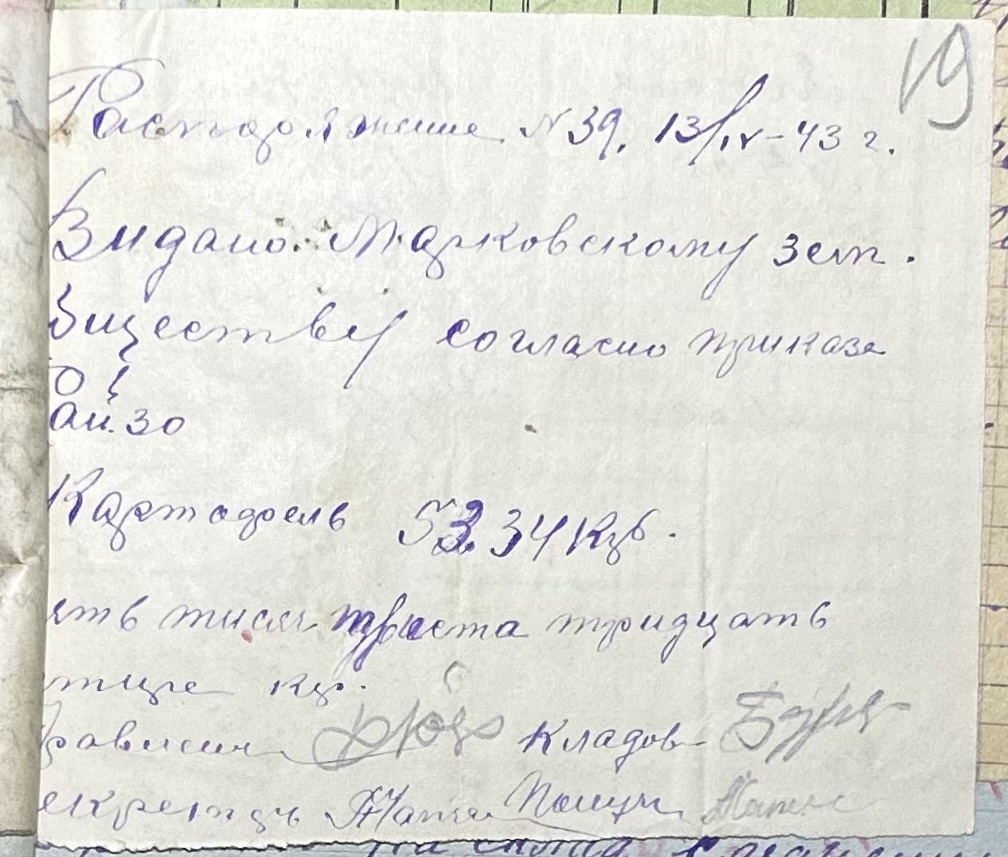 19
Распоряжение N 39. 13/IV-43 г.
Видано Марковскому зем.
бществу согласно приказа
айзо
Картофель 53.34 кг.
ять тисяч триста тридцать
тире кг.
Кладов
екретарь Получ